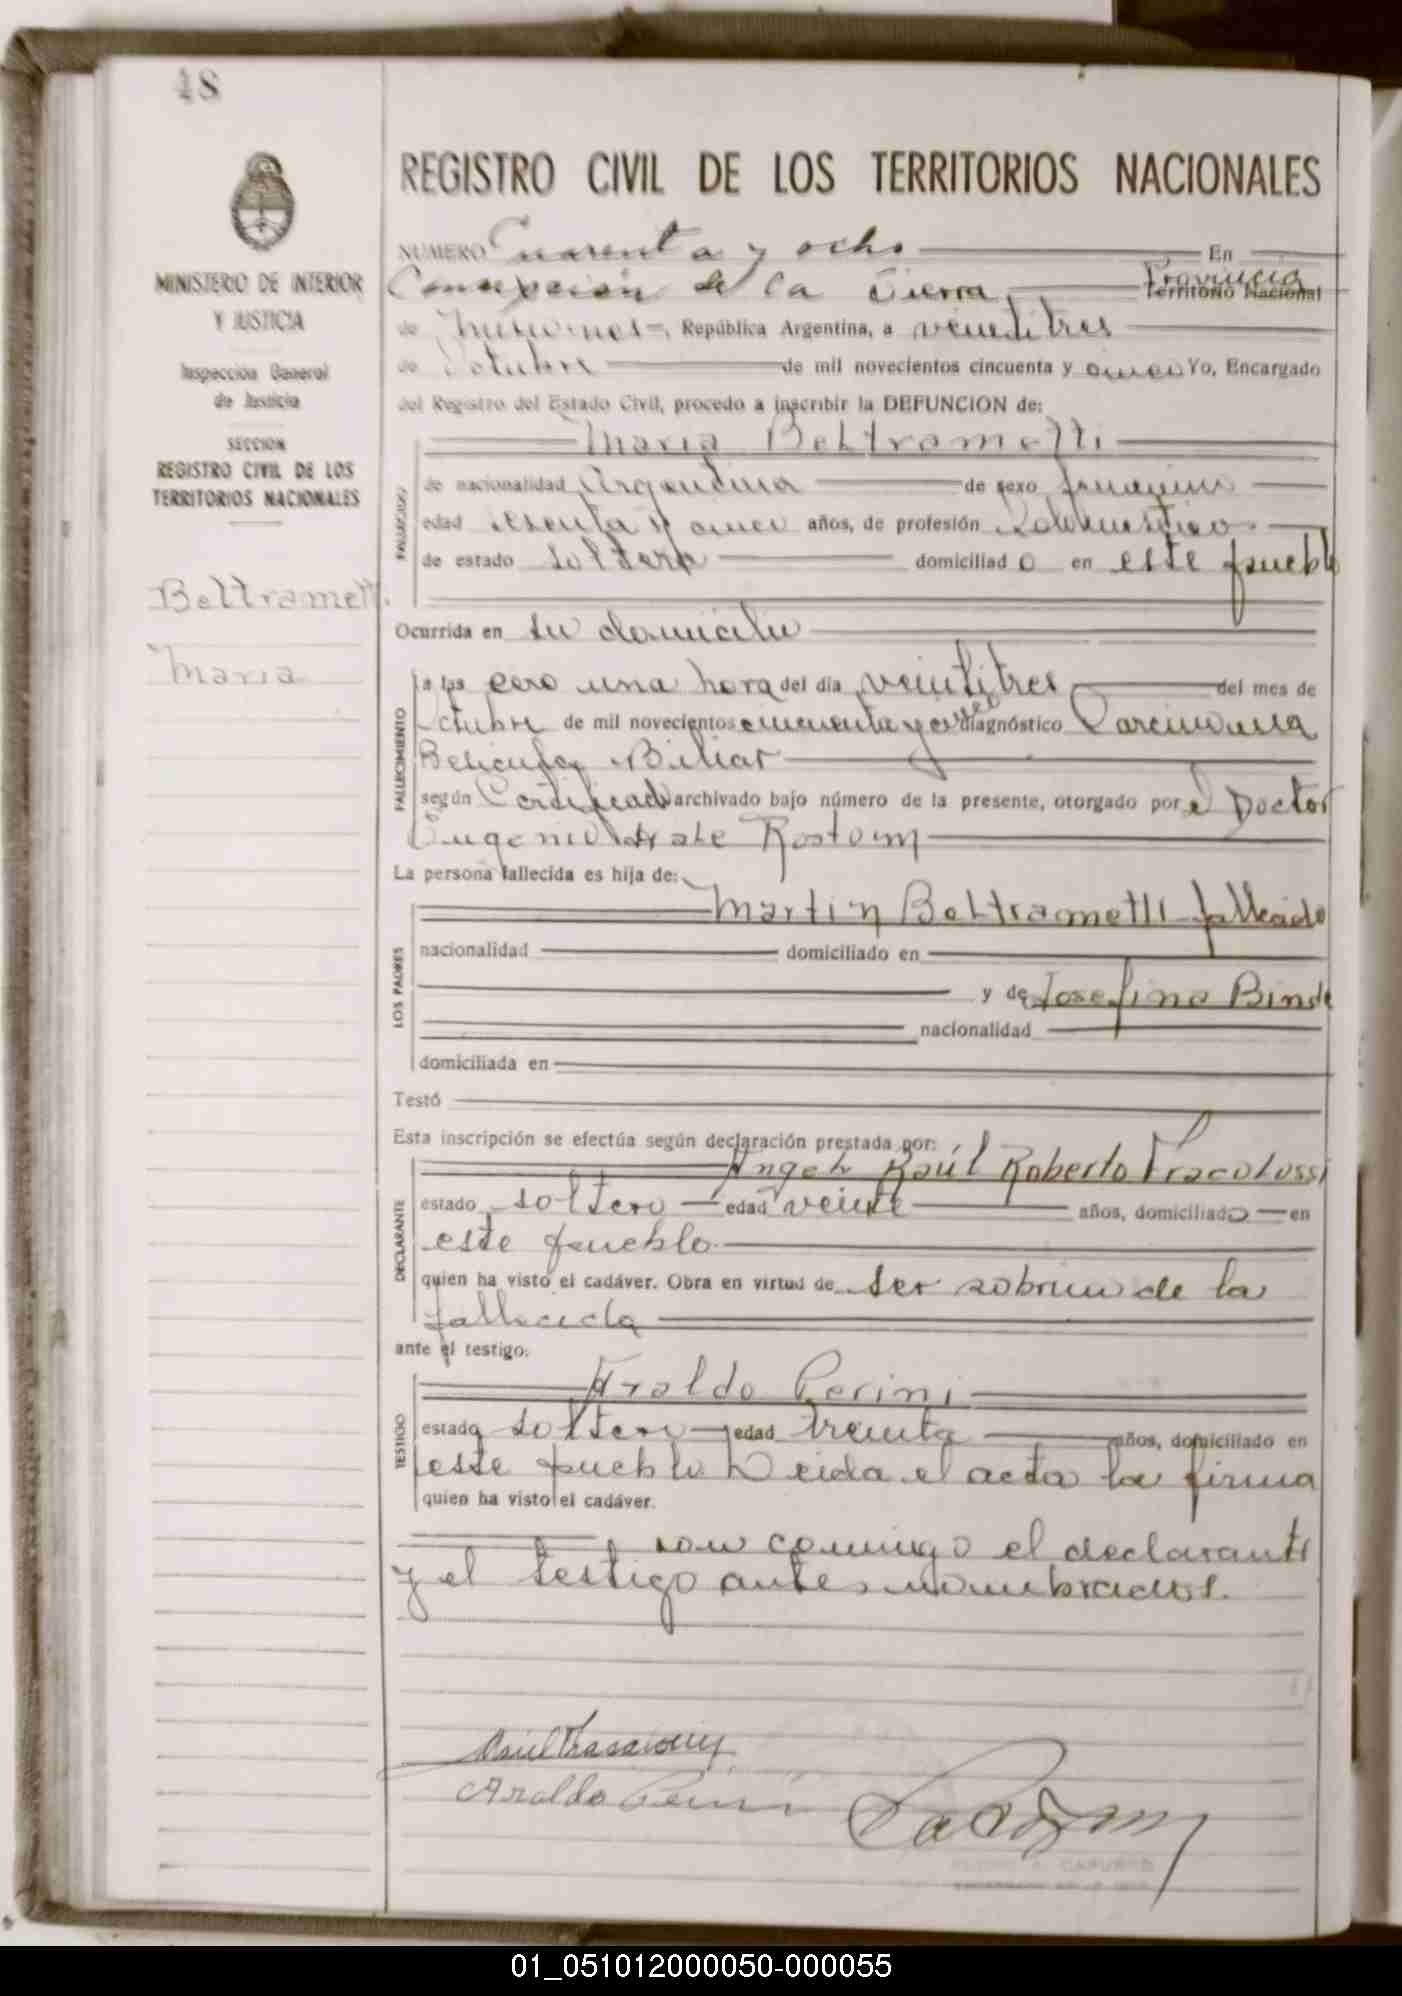 48
REGISTRO CIVIL DE LOS TERRITORIOS NACIONALES
MINISTERIO DE INTERIOR
Y JUSTICIA
Inspección General
de Justicia
SECCION
REGISTRO CIVIL DE LOS
TERRITORIOS NACIONALES
Beltrametti
Maria
NUMERO Cuarenta y ocho En
Concepción de la Sierra Provincia
Territorio Nacional
de Misiones, República Argentina, a veintitres
de Octubre de mil novecientos cincuenta y cinco Yo, Encargado
del Registro del Estado Civil, procedo a inscribir la DEFUNCION de:
Maria Beltrametti
FALLECIDO
de nacionalidad Argentina de sexo
edad sesenta y cinco años, de profesión
de estado soltera domiciliad o en este pueblo
Ocurrida en su domicilio
FALLECIMIENTO
a las cero una hora del día veintitres del mes de
Octubre de mil novecientos cincuenta y cinco diagnóstico Carcinoma
Biliar
según Certificado archivado bajo número de la presente, otorgado por el Doctor
Eugenio
La persona fallecida es hija de:
LOS PADRES
Martin Beltrametti fallecido
nacionalidad domiciliado en
y de Josefina
nacionalidad
domiciliada en
Testó
Esta inscripción se efectúa según declaración prestada por:
DECLARANTE
Angel Raúl Roberto Fracalossi
estado soltero edad veinte años, domiciliado en
este pueblo
quien ha visto el cadáver. Obra en virtud de ser sobrino de la
fallecida
ante el testigo:
TESTIGO
Araldo Perini
estado soltero edad treinta años, domiciliado en
este pueblo Leida el acta la firma
quien ha visto el cadáver.
ron conmigo el declarante
y el testigo antes nombrados.
Araldo Perini
01_051012000050-000055